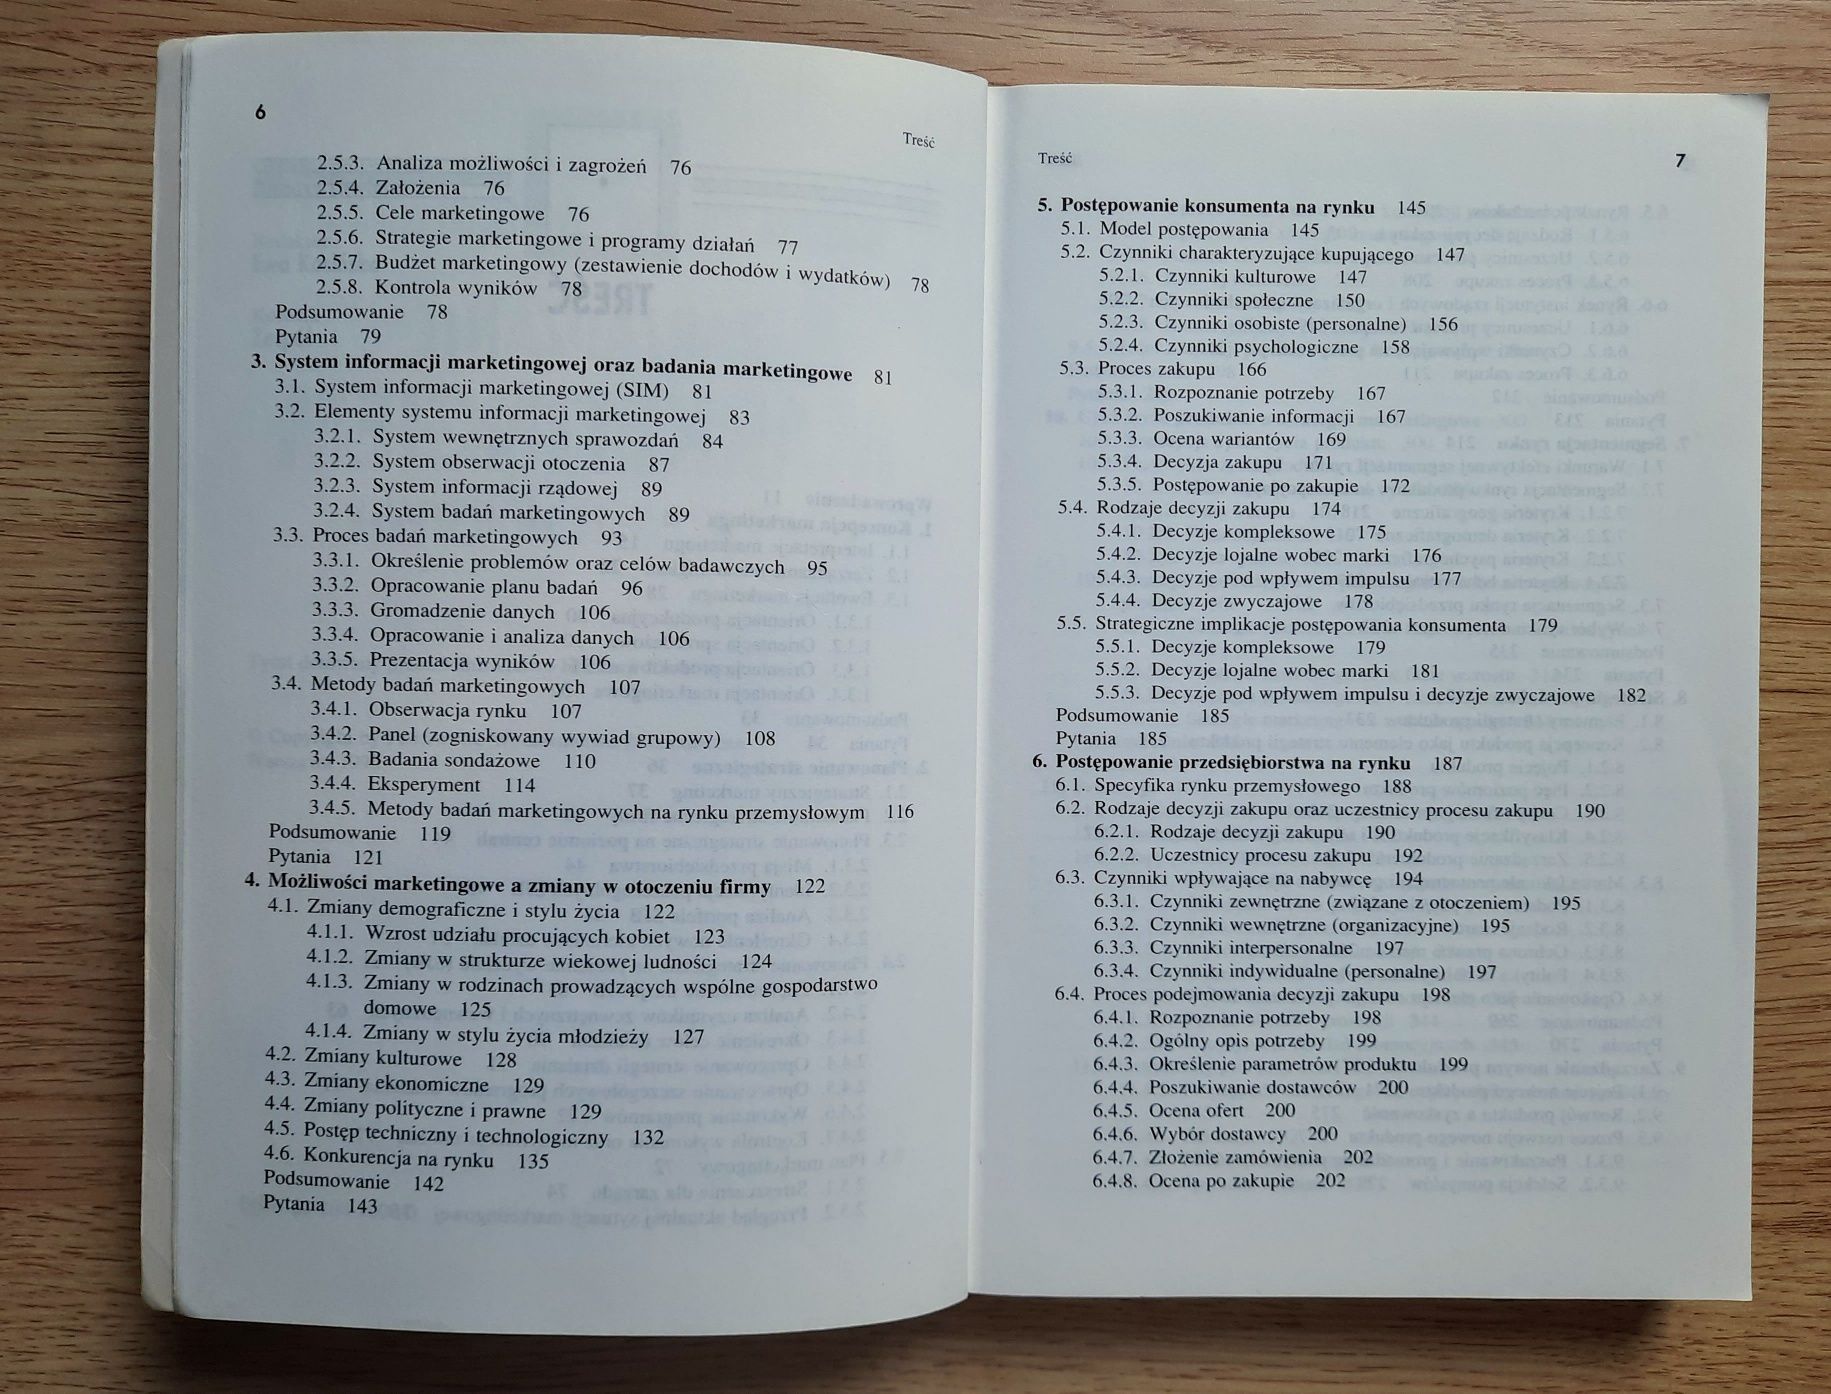 6
Treść
2.5.3. Analiza możliwości i zagrożeń 76
2.5.4. Założenia 76
2.5.5. Cele marketingowe 76
2.5.6. Strategie marketingowe i programy działań 77
2.5.7. Budżet marketingowy (zestawienie dochodów i wydatków) 78
2.5.8. Kontrola wyników 78
Podsumowanie 78
Pytania 79
3. System informacji marketingowej oraz badania marketingowe 81
3.1. System informacji marketingowej (SIM) 81
3.2. Elementy systemu informacji marketingowej 83
3.2.1. System wewnętrznych sprawozdań 84
3.2.2. System obserwacji otoczenia 87
3.2.3. System informacji rządowej 89
3.2.4. System badań marketingowych 89
3.3. Proces badań marketingowych 93
3.3.1. Określenie problemów oraz celów badawczych 95
3.3.2. Opracowanie planu badań 96
3.3.3. Gromadzenie danych 106
3.3.4. Opracowanie i analiza danych 106
3.3.5. Prezentacja wyników 106
3.4. Metody badań marketingowych 107
3.4.1. Obserwacja rynku 107
3.4.2. Panel (zogniskowany wywiad grupowy) 108
3.4.3. Badania sondażowe 110
3.4.4. Eksperyment 114
3.4.5. Metody badań marketingowych na rynku przemysłowym 116
Podsumowanie 119
Pytania 121
4. Możliwości marketingowe a zmiany w otoczeniu firmy 122
4.1. Zmiany demograficzne i stylu życia 122
4.1.1. Wzrost udziału procujących kobiet 123
4.1.2. Zmiany w strukturze wiekowej ludności 124
4.1.3. Zmiany w rodzinach prowadzących wspólne gospodarstwo
domowe 125
4.1.4. Zmiany w stylu życia młodzieży 127
4.2. Zmiany kulturowe 128
4.3. Zmiany ekonomiczne 129
4.4. Zmiany polityczne i prawne 129
4.5. Postęp techniczny i technologiczny 132
4.6. Konkurencja na rynku 135
Podsumowanie 142
Pytania 143
Treść
7
5. Postępowanie konsumenta na rynku 145
5.1. Model postępowania 145
5.2. Czynniki charakteryzujące kupującego 147
5.2.1. Czynniki kulturowe 147
5.2.2. Czynniki społeczne 150
5.2.3. Czynniki osobiste (personalne) 156
5.2.4. Czynniki psychologiczne 158
5.3. Proces zakupu 166
5.3.1. Rozpoznanie potrzeby 167
5.3.2. Poszukiwanie informacji 167
5.3.3. Ocena wariantów 169
5.3.4. Decyzja zakupu 171
5.3.5. Postępowanie po zakupie 172
5.4. Rodzaje decyzji zakupu 174
5.4.1. Decyzje kompleksowe 175
5.4.2. Decyzje lojalne wobec marki 176
5.4.3. Decyzje pod wpływem impulsu 177
5.4.4. Decyzje zwyczajowe 178
5.5. Strategiczne implikacje postępowania konsumenta 179
5.5.1. Decyzje kompleksowe 179
5.5.2. Decyzje lojalne wobec marki 181
5.5.3. Decyzje pod wpływem impulsu i decyzje zwyczajowe 182
Podsumowanie 185
Pytania 185
6. Postępowanie przedsiębiorstwa na rynku 187
6.1. Specyfika rynku przemysłowego 188
6.2. Rodzaje decyzji zakupu oraz uczestnicy procesu zakupu 190
6.2.1. Rodzaje decyzji zakupu 190
6.2.2. Uczestnicy procesu zakupu 192
6.3. Czynniki wpływające na nabywcę 194
6.3.1. Czynniki zewnętrzne (związane z otoczeniem) 195
6.3.2. Czynniki wewnętrzne (organizacyjne) 195
6.3.3. Czynniki interpersonalne 197
6.3.4. Czynniki indywidualne (personalne) 197
6.4. Proces podejmowania decyzji zakupu 198
6.4.1. Rozpoznanie potrzeby 198
6.4.2. Ogólny opis potrzeby 199
6.4.3. Określenie parametrów produktu 199
6.4.4. Poszukiwanie dostawców 200
6.4.5. Ocena ofert 200
6.4.6. Wybór dostawcy 200
6.4.7. Złożenie zamówienia 202
6.4.8. Ocena po zakupie 202